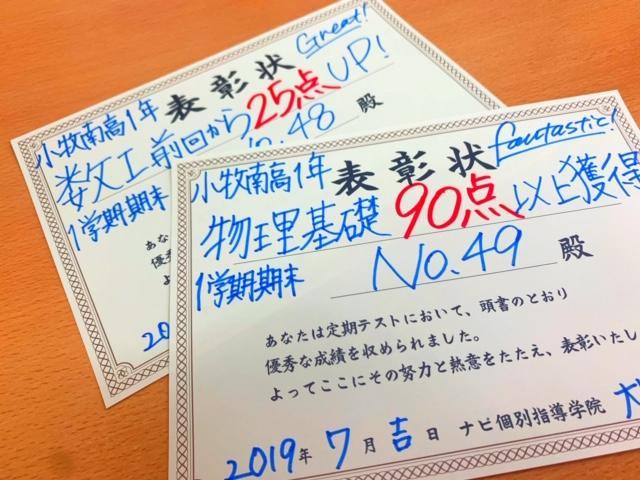 Great!
小牧南高1年
表彰状
数I前回から25点UP!
1学期期末
No.48 殿
あな
優秀
よって
fantastic!
小牧南高1年
表彰状
物理基礎 90点以上獲得
1学期期末
No.49 殿
あなたは定期テストにおいて、頭書のとおり
優秀な成績を収められました。
よってここにその努力と熱意をたたえ、表彰いたし
2019年7月吉日 ナビ個別指導学院